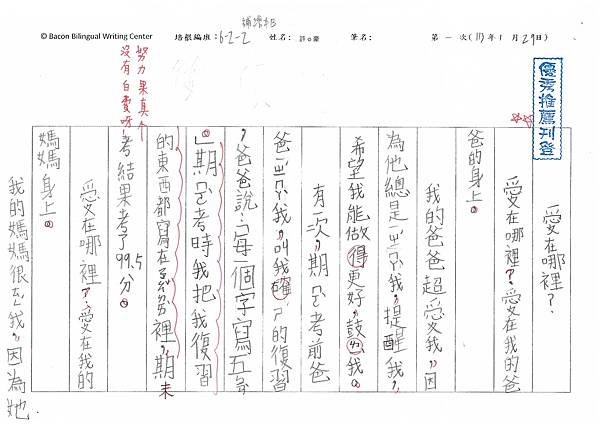 補課班
© Bacon Bilingual Writing Center 培根編班:6-2-2 姓名:許o豪 筆名: 第一次(113年1月29日)
優秀推薦刊登
愛在哪裡?
愛在哪裡?愛在我的爸
爸的身上。
我的爸爸超愛我,因
為他總是
我,提醒我,
希望我能做得更好,鼓
我。
有一次,期
考前爸
爸
我,叫我確
的復習
,爸爸說:「每一個字寫五
」期
考時我把我復習
的東西都寫在
裡,期末
考結果考了99.5分。
努力果真不
沒有白費呀
愛在哪裡?愛在我的
媽媽身上。
我的媽媽很
我,因為她